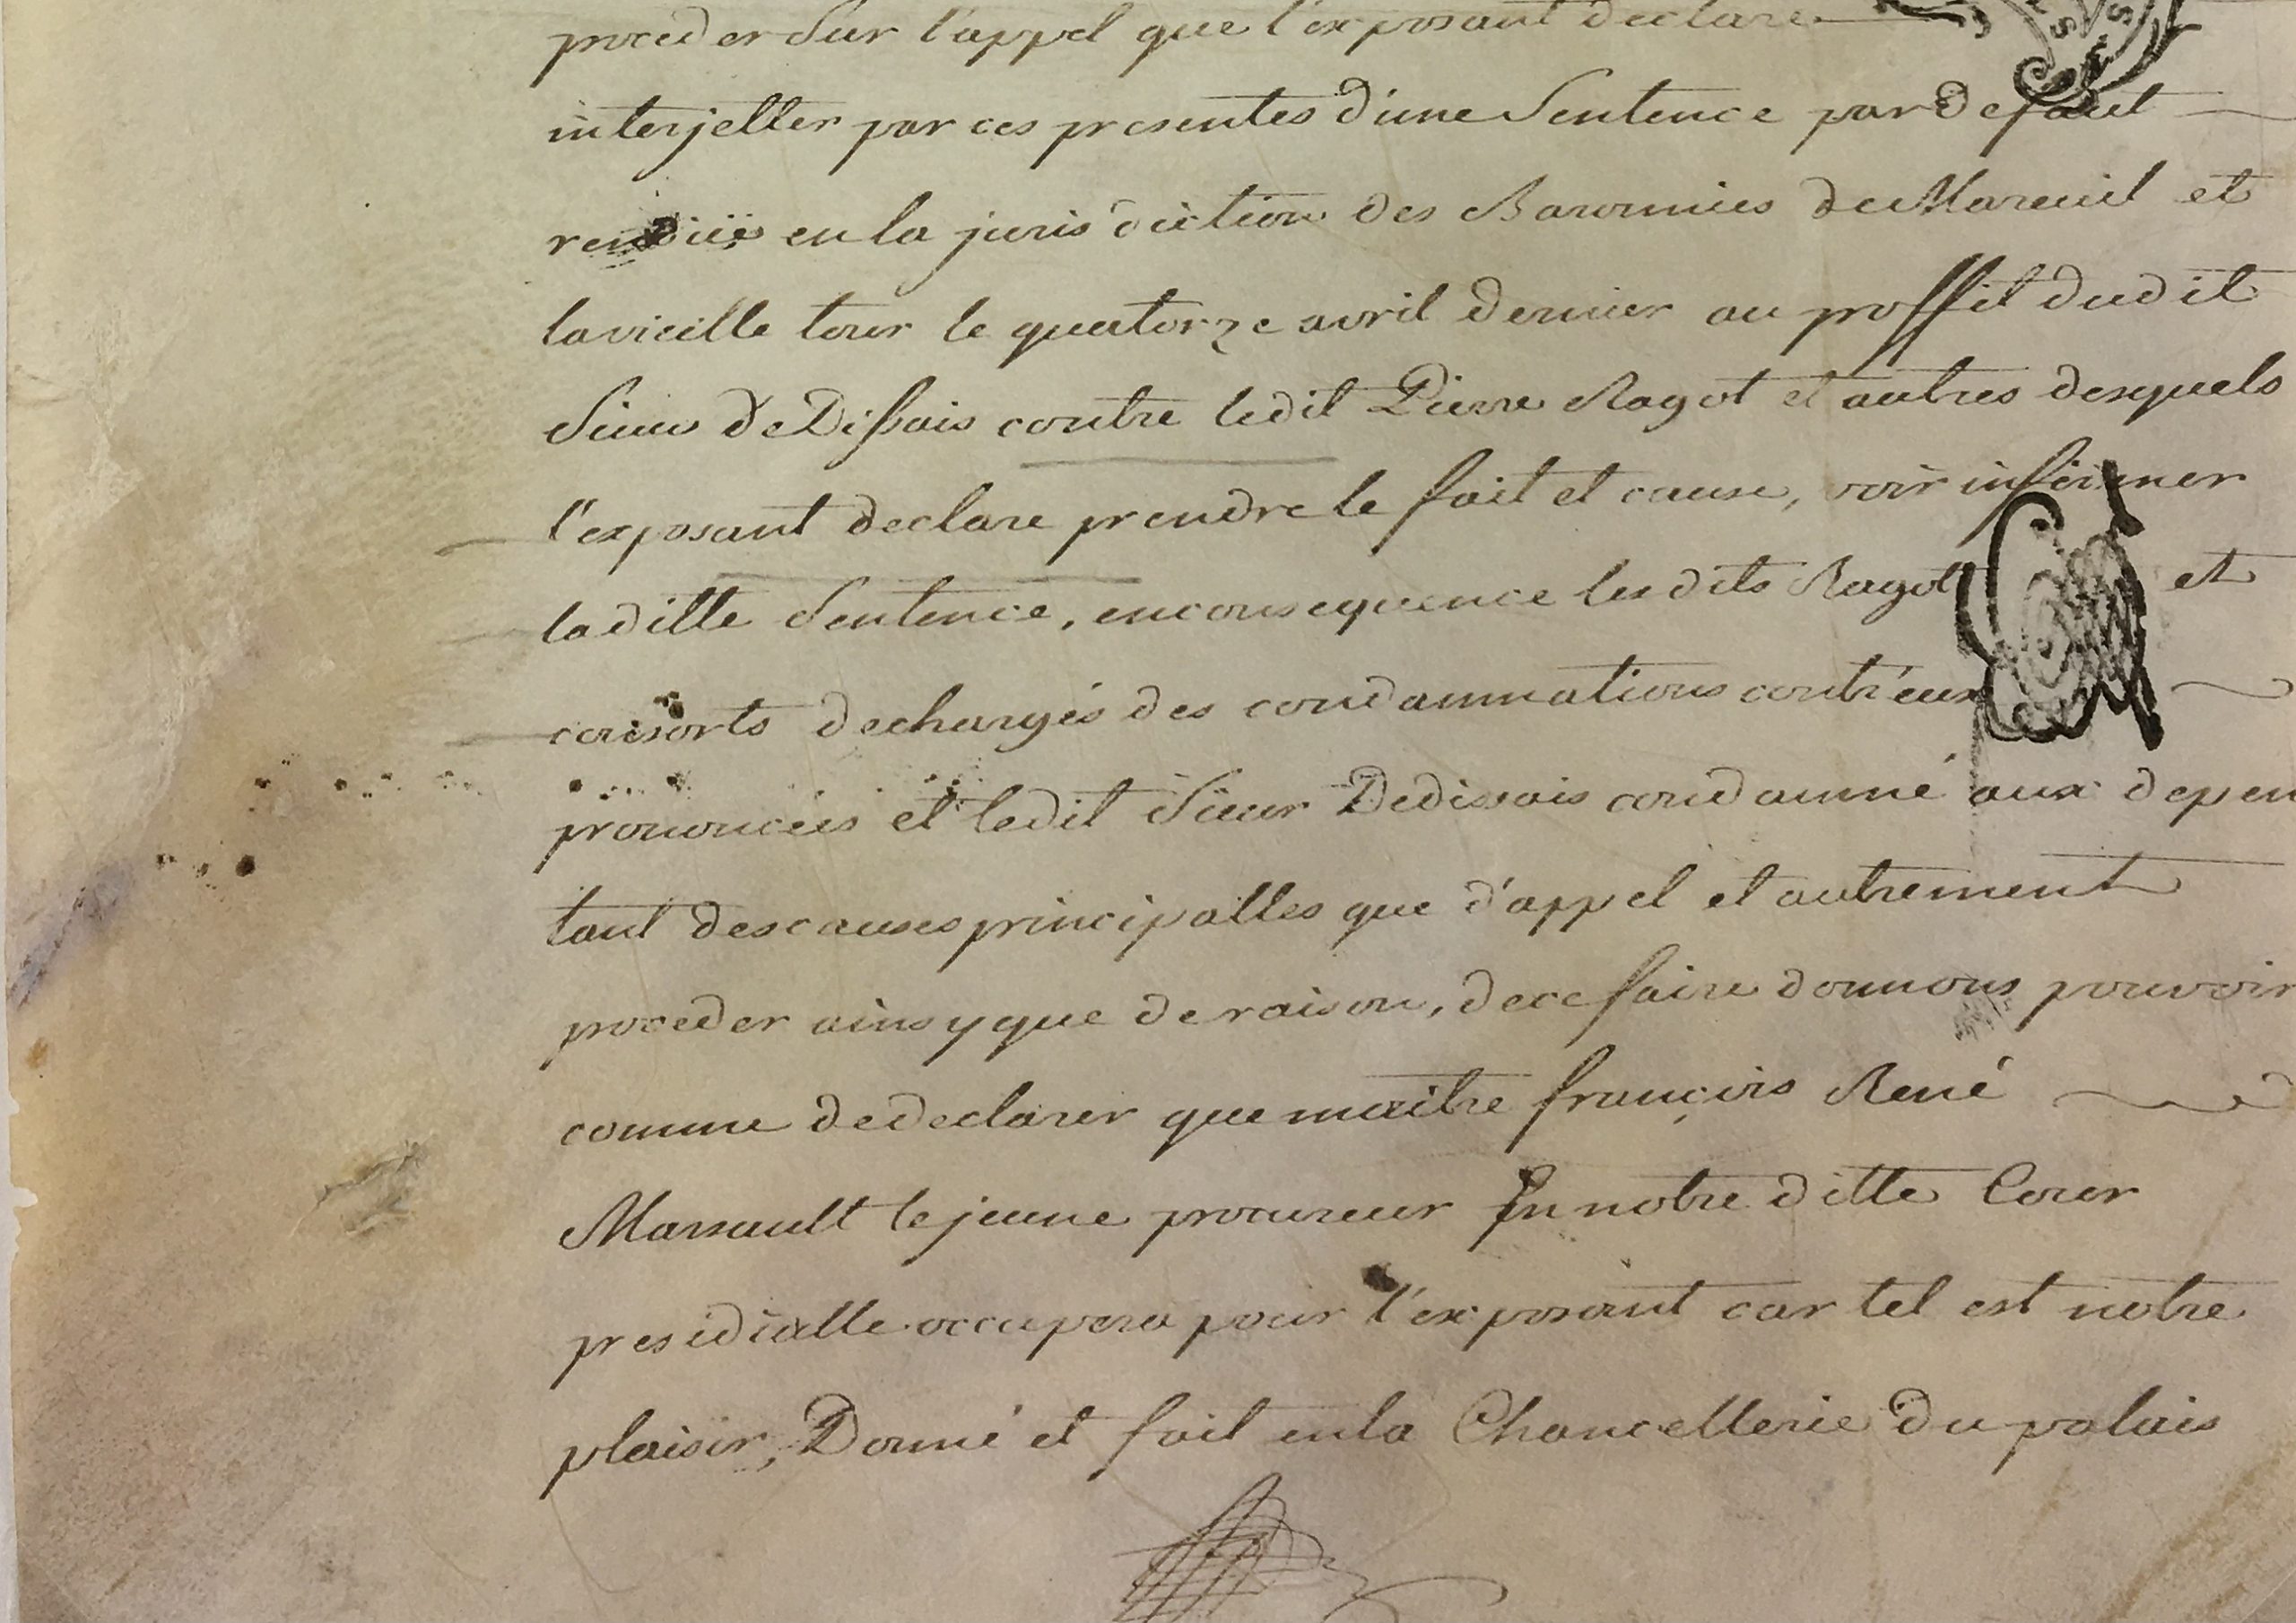 proceder Sur l'appel que l'exposant declare
interjetter par ces presentes d'une Sentence par defaut
rendüe en la jurisdiction des Baronnies de Mareuil et
la vieille tour le quatorze avril dernier au proffit dudit
Sieur de Dissais contre ledit Pierre Ragot et autres desquels
l'exposant declare prendre le fait et cause, voir infirmer
laditte Sentence, en consequence lesdits Ragot et
consorts dechargés des condamnations contr'eux
prononcées et ledit Sieur Dedissais condamné aux depen
tant des causes principalles que d'appel et autrement
proceder ainsy que de raison, de ce faire donnons pouvoir
comme de declarer que maitre françois René
Marsault le jeune procureur En notre ditte Cour
presidialle occupera pour l'exposant car tel est notre
plaisir, Donné et fait en la Chancellerie du palais